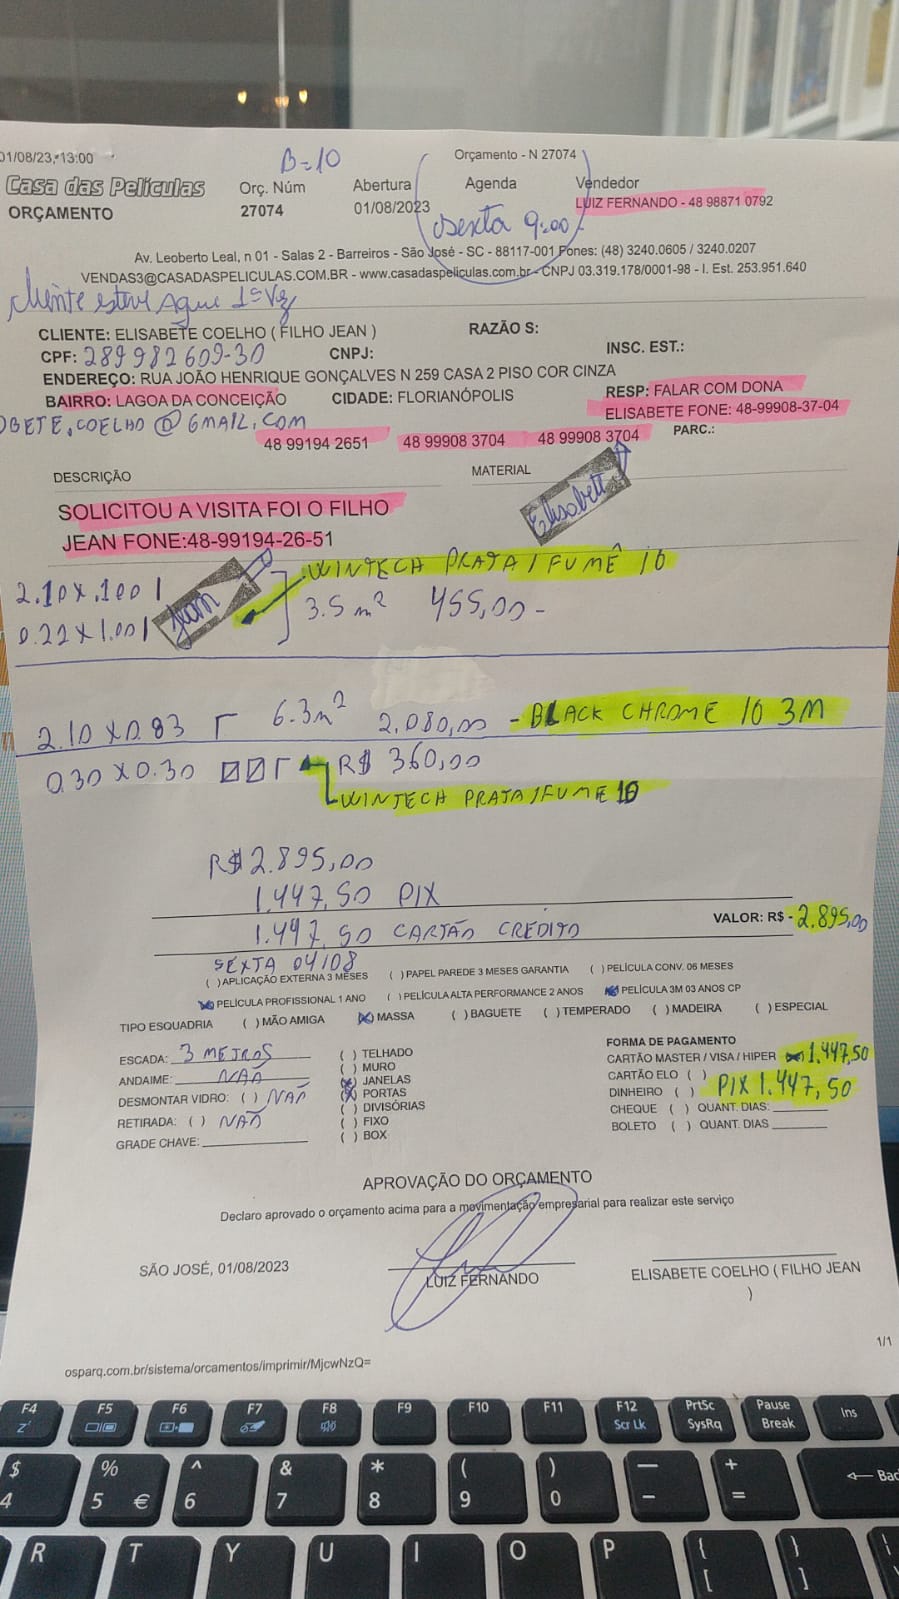 01/08/23, 13:00
Orçamento - N 27074
B=10
Casa das Películas
Orç. Núm
Abertura
Agenda
Vendedor
ORÇAMENTO
27074
01/08/2023
sexta 9:00
LUIZ FERNANDO - 48 98871 0792
Av. Leoberto Leal, n 01 - Salas 2 - Barreiros - São José - SC - 88117-001 Fones: (48) 3240.0605 / 3240.0207
VENDAS3@CASADASPELICULAS.COM.BR - www.casadaspeliculas.com.br - CNPJ 03.319.178/0001-98 - I. Est. 253.951.640
Cliente esteve Aqui 1ª Vez
CLIENTE: ELISABETE COELHO ( FILHO JEAN )
RAZÃO S:
CPF: 289982609-30
CNPJ:
INSC. EST.:
ENDEREÇO: RUA JOÃO HENRIQUE GONÇALVES N 259 CASA 2 PISO COR CINZA
BAIRRO: LAGOA DA CONCEIÇÃO
CIDADE: FLORIANÓPOLIS
RESP: FALAR COM DONA
ELISABETE FONE: 48-99908-37-04
OBETE.COELHO@GMAIL.COM
48 99194 2651
48 99908 3704
48 99908 3704
PARC.:
DESCRIÇÃO
MATERIAL
Elisabett
SOLICITOU A VISITA FOI O FILHO
JEAN FONE:48-99194-26-51
WINTECH PRATA/FUMÊ 10
2.10 x 1.00 1
Jean
3.5 m² 455,00 -
0.22 x 1.00 1
2.10 x 0.83
6.3m² 2.080,00 - BLACK CHROME 10 3M
0.30 x 0.30
R$ 360,00
WINTECH PRATA/FUME 10
R$ 2.895,00
1.447,50 PIX
VALOR: R$ - 2.895,00
1.447,50 CARTÃO CRÉDITO
SEXTA 04/08
( ) APLICAÇÃO EXTERNA 3 MESES ( ) PAPEL PAREDE 3 MESES GARANTIA ( ) PELÍCULA CONV. 06 MESES
(X) PELÍCULA PROFISSIONAL 1 ANO ( ) PELÍCULA ALTA PERFORMANCE 2 ANOS (X) PELÍCULA 3M 03 ANOS CP
TIPO ESQUADRIA ( ) MÃO AMIGA (X) MASSA ( ) BAGUETE ( ) TEMPERADO ( ) MADEIRA ( ) ESPECIAL
ESCADA: 3 METROS
ANDAIME: NÃO
DESMONTAR VIDRO: ( ) NÃO
RETIRADA: ( ) NÃO
GRADE CHAVE:
( ) TELHADO
( ) MURO
(X) JANELAS
(X) PORTAS
( ) DIVISÓRIAS
( ) FIXO
( ) BOX
FORMA DE PAGAMENTO
CARTÃO MASTER / VISA / HIPER (X) 1.447,50
CARTÃO ELO ( )
DINHEIRO ( ) PIX 1.447,50
CHEQUE ( ) QUANT. DIAS:
BOLETO ( ) QUANT. DIAS
APROVAÇÃO DO ORÇAMENTO
Declaro aprovado o orçamento acima para a movimentação empresarial para realizar este serviço
SÃO JOSÉ, 01/08/2023
LUIZ FERNANDO
ELISABETE COELHO ( FILHO JEAN
)
1/1
osparq.com.br/sistema/orcamentos/imprimir/MjcwNzQ=
F4 F5 F6 F7 F8 F9 F10 F11 F12 PrtSc Pause Ins
Scr Lk SysRq Break
$ % ^ & * ( ) — + Bac
4 5 € 6 7 8 9 0 - =
R T Y U I O P { }
[ ]